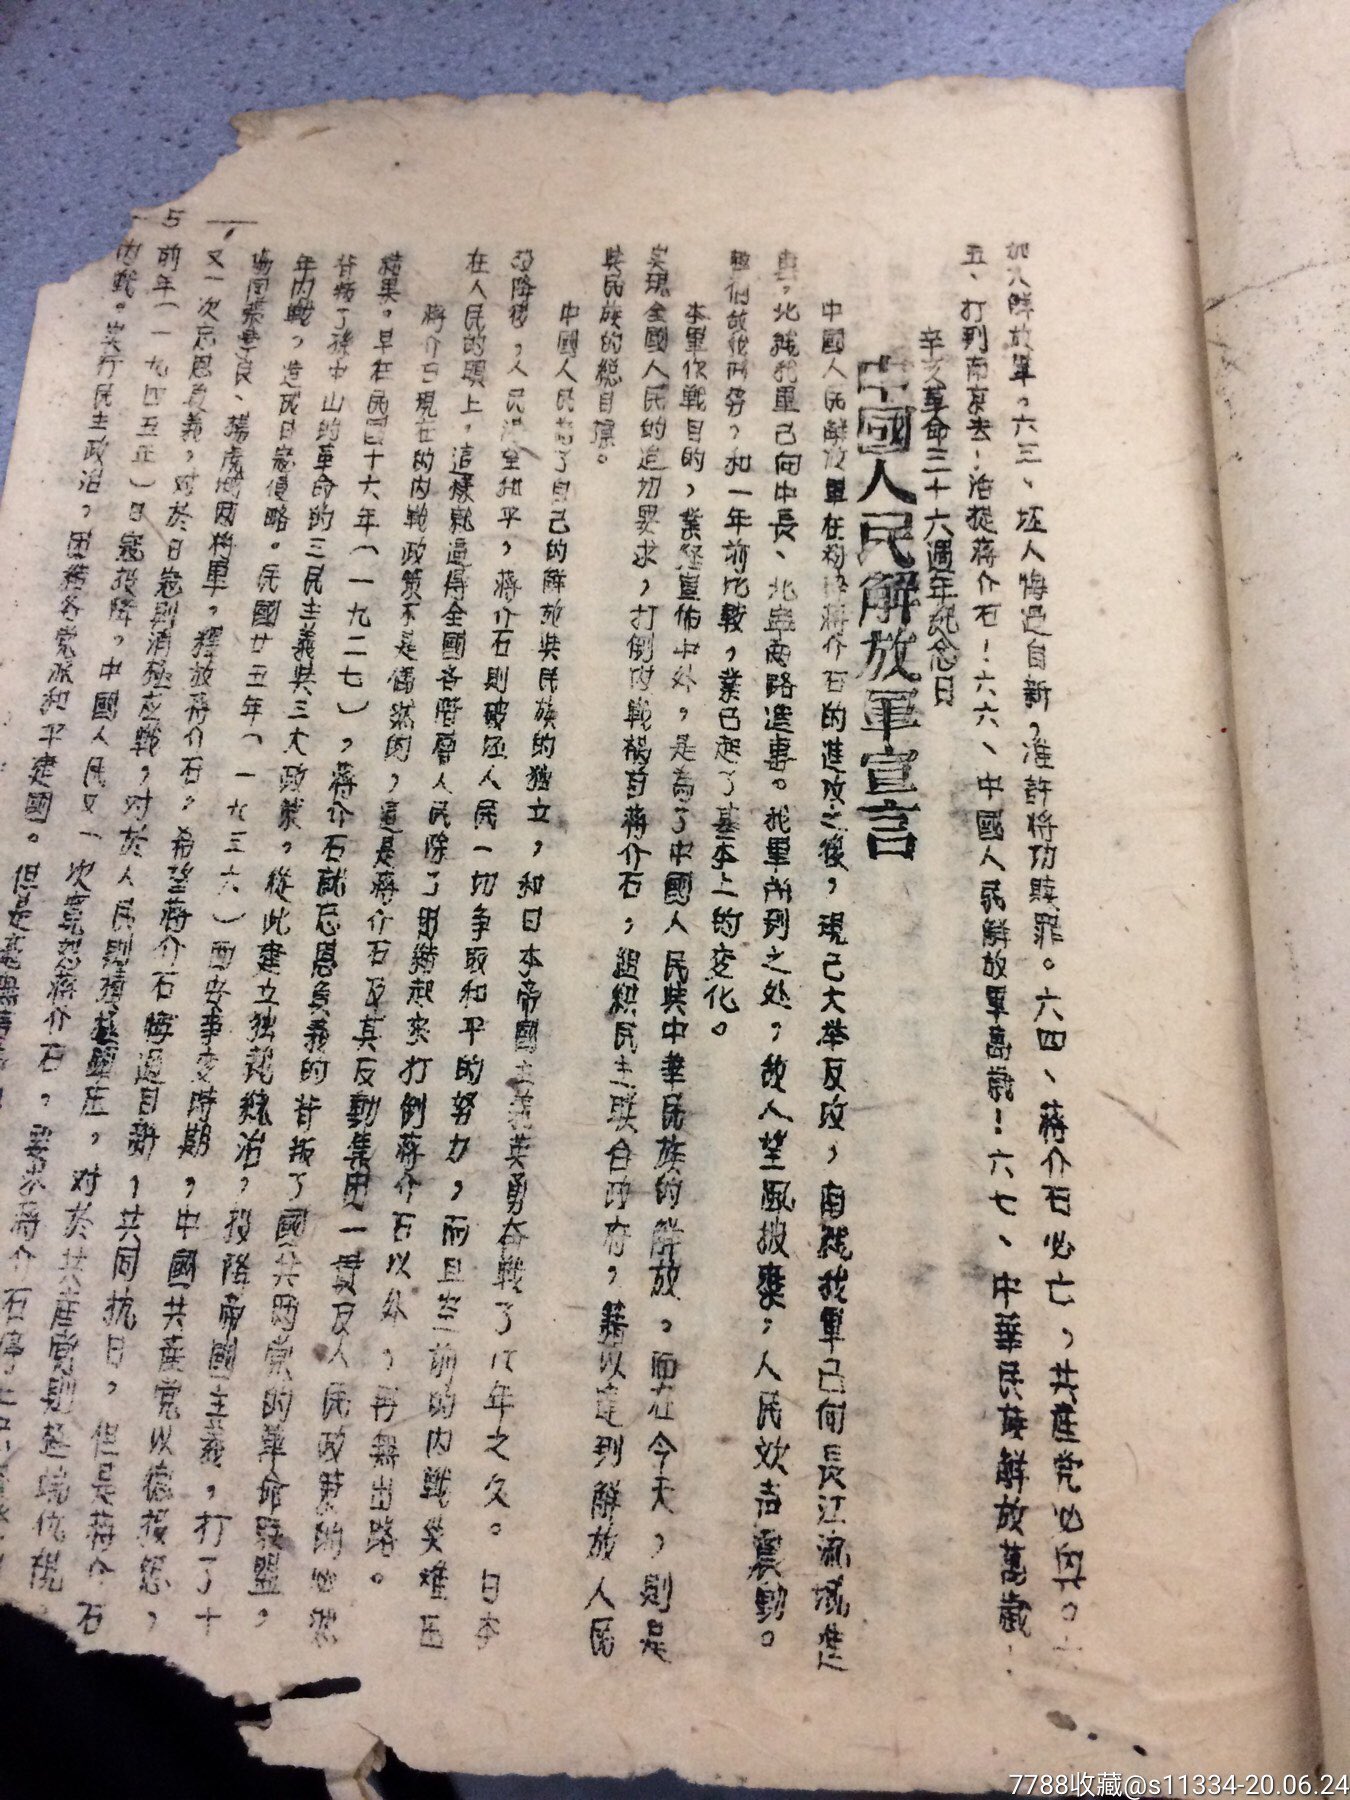 加入解放軍。六三、坯人悔过自新，准許将功贖罪。六四、蔣介石必亡，共產党必兴。六
五、打到南京去，活捉蔣介石！六六、中國人民解放軍萬歲！六七、中華民族解放萬歲！
辛亥革命三十六週年紀念日
中國人民解放軍宣言
中國人民解放軍在粉碎蔣介石的進攻之後，現已大举反攻，南綫我軍已向長江流域進
軍，北綫我軍已向中長、北寧兩路進軍。我軍所到之处，敌人望風披靡，人民欢声震動。
整個敌我形势，和一年前比較，業已起了基本上的变化。
本軍作戰目的，業經宣佈中外，是為了中國人民共中華民族的解放，而在今天，則是
实現全國人民的迫切要求，打倒內戰禍首蔣介石，組织民主联合政府，藉以達到解放人民
共民族的総目標。
中國人民為了自己的解放共民族的独立，和日本帝國主義英勇奋戰了八年之久。日本
投降後，人民渴望和平，蔣介石則破坯人民一切争取和平的努力，而且空前的內戰災难压
在人民的頭上，這樣就逼得全國各階層人民除了团結起來打倒蔣介石以外，再無出路。
蔣介石現在的內戰政策不是偶然的，這是蔣介石及其反動集团一貫反人民政策的必然
結果。早在民國十六年（一九二七），蔣介石就忘恩負義的背叛了國共两党的革命联盟，
背叛了孫中山的革命的三民主義共三大政策，從此建立独裁統治，投降帝國主義，打了十
年內戰，造成日寇侵略。民國廿五年（一九三六）西安事变時期，中國共產党以德报怨，
協同張學良、楊虎城两将軍，釋放蔣介石，希望蔣介石悔過自新，共同抗日，但是蔣介石
又一次忘恩負義，对於日寇則消極应戰，对於人民則積極鎮压，对於共產党則極端仇視。
前年（一九四五年）日寇投降，中國人民又一次寬恕蔣介石，要求蔣介石停止
內戰。实行民主政治，团結各党派和平建國。但是毫無
5